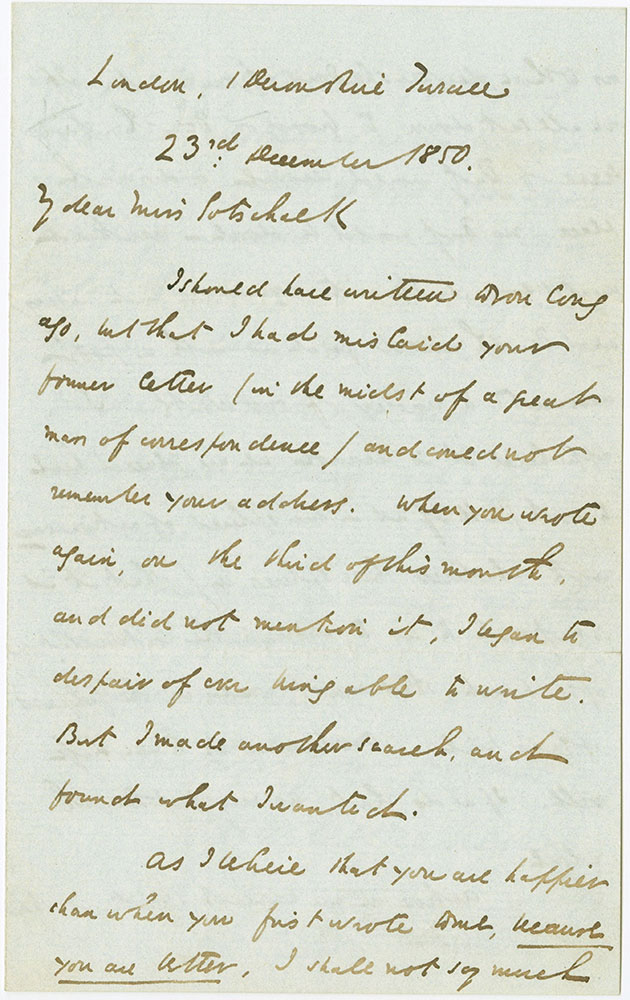 London, 1 Devonshire Terrace
23rd. December 1850.
My dear Miss Gotschalk
I should have written to you long
ago, but that I had mislaid your
former letter (in the midst of a great
mass of correspondence) and could not
remember your address. When you wrote
again, on the third of this month,
and did not mention it, I began to
despair of ever being able to write.
But I made another search, and
found what I wanted.
As I believe that you are happier
than when you first wrote to me, because
you are better, I shall not say much